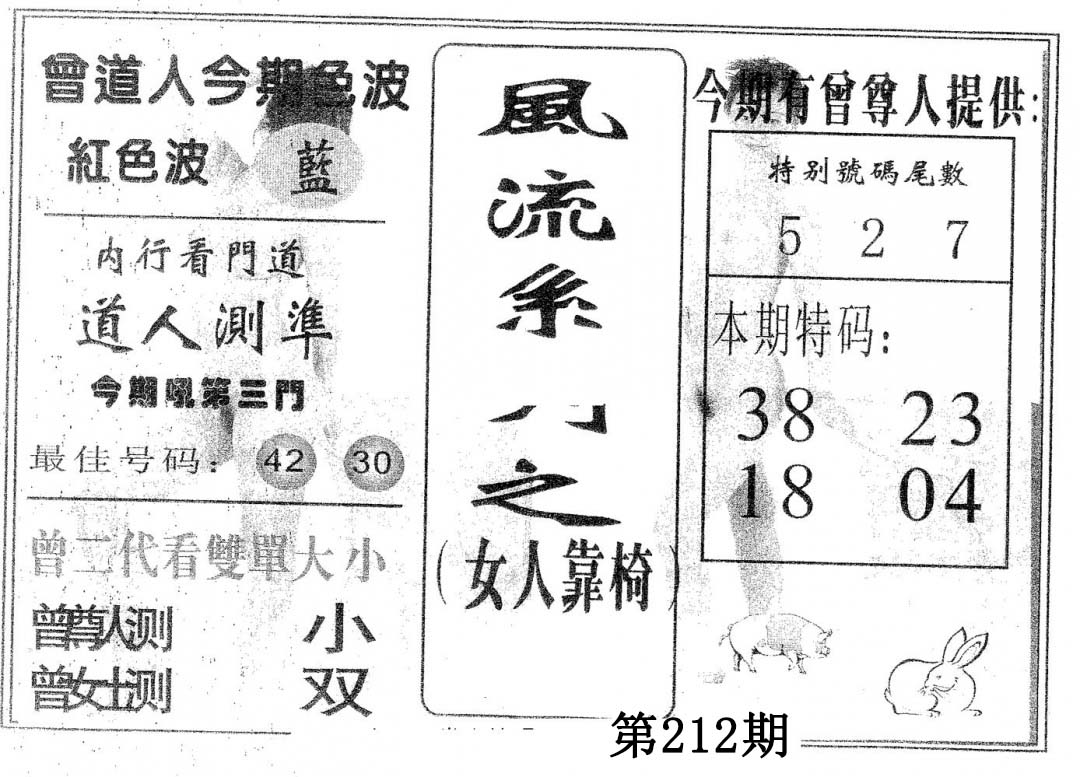 曾道人今期色波
紅色波 藍
内行看門道
道人測準
今期吼第三門
最佳号码： 42 30
曾二代看雙單大小
曾尊人测 小
曾女士测 双
風
流
系
之
（女人靠椅）
今期有曾尊人提供：
特别號碼尾數
5 2 7
本期特码：
38 23
18 04
第212期